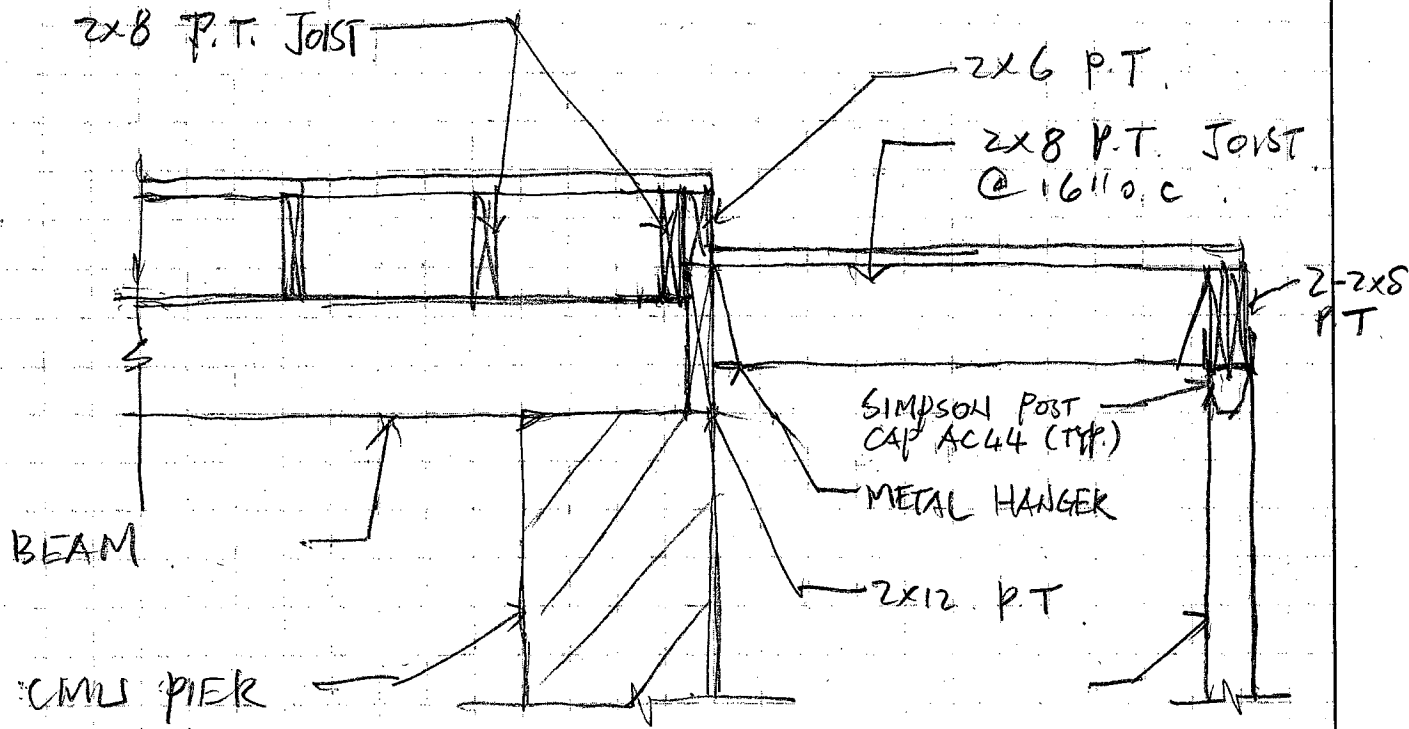 2x8 P.T. JOIST
2x6 P.T.
2x8 P.T. JOIST
@ 16" O.C.
2-2x8
P.T
SIMPSON POST
CAP AC44 (TYP.)
METAL HANGER
BEAM
2x12 P.T
CMU PIER